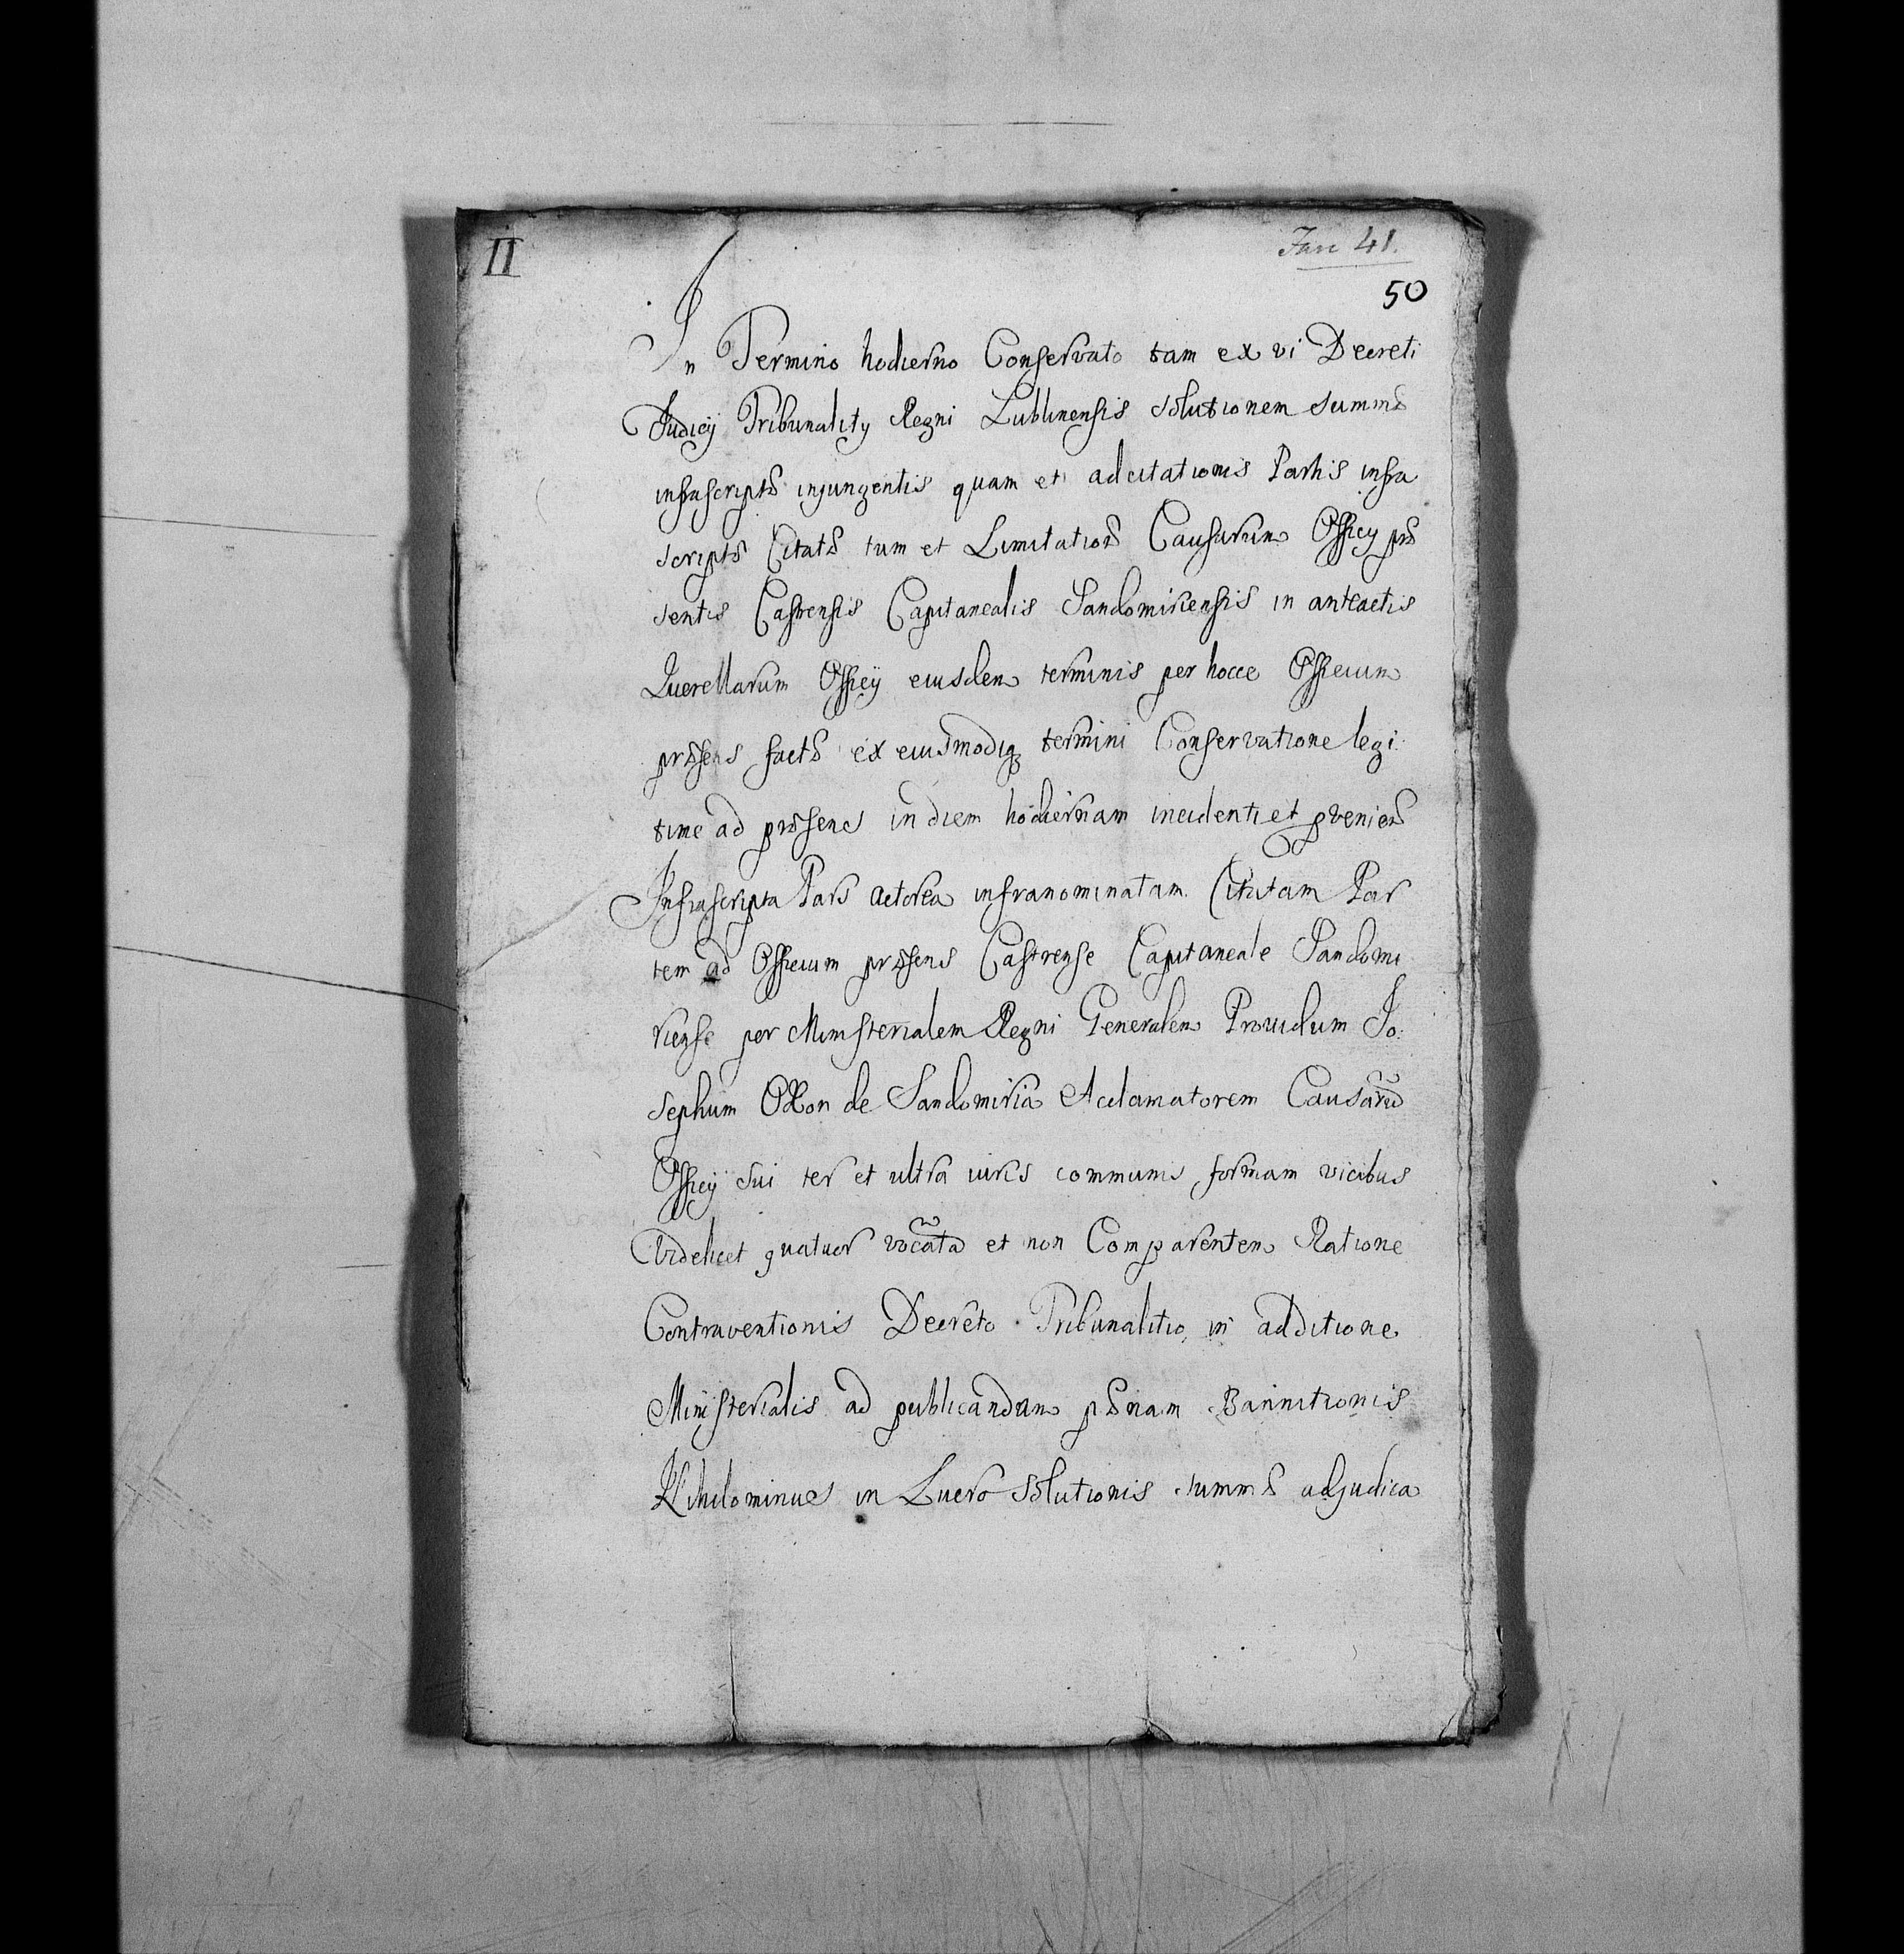 II
Fasc 41.
50
In Termino hodierno Conservato tam ex vi Decreti
Judicij Tribunality Regni Lublinensis solutionem summæ
infrascriptæ injungentis quam et adcitationis Partis infra
scriptæ Citatæ tum et Limitationæ Causarum Officy præ
sentis Castrensis Capitanealis Sandomiriensis in anteactis
Querellarum Officij eiusdem terminis per hocce Officium
præsens factæ ex eiusmodiq termini Conservatione legi
time ad præsens in diem hodiernam incidenti et pveniens
Infrascripta Pars actorea infranominatam Citatam Par
tem ad Officium præsens Castrense Capitaneale Sandomi
riense per Ministerialem Regni Generalem Providum Jo:
sephum de Sandomiria Aclamatorem Causarū
Officij sui ter et ultra iuris communis formam vicibus
Videlicet quatuor vocata et non Comparentem Ratione
Contraventionis Decreto Tribunalitio in additione
Ministerialis ad publicandam pænam Bannitionis
Nihilominus in Lucro solutionis summæ adjudica